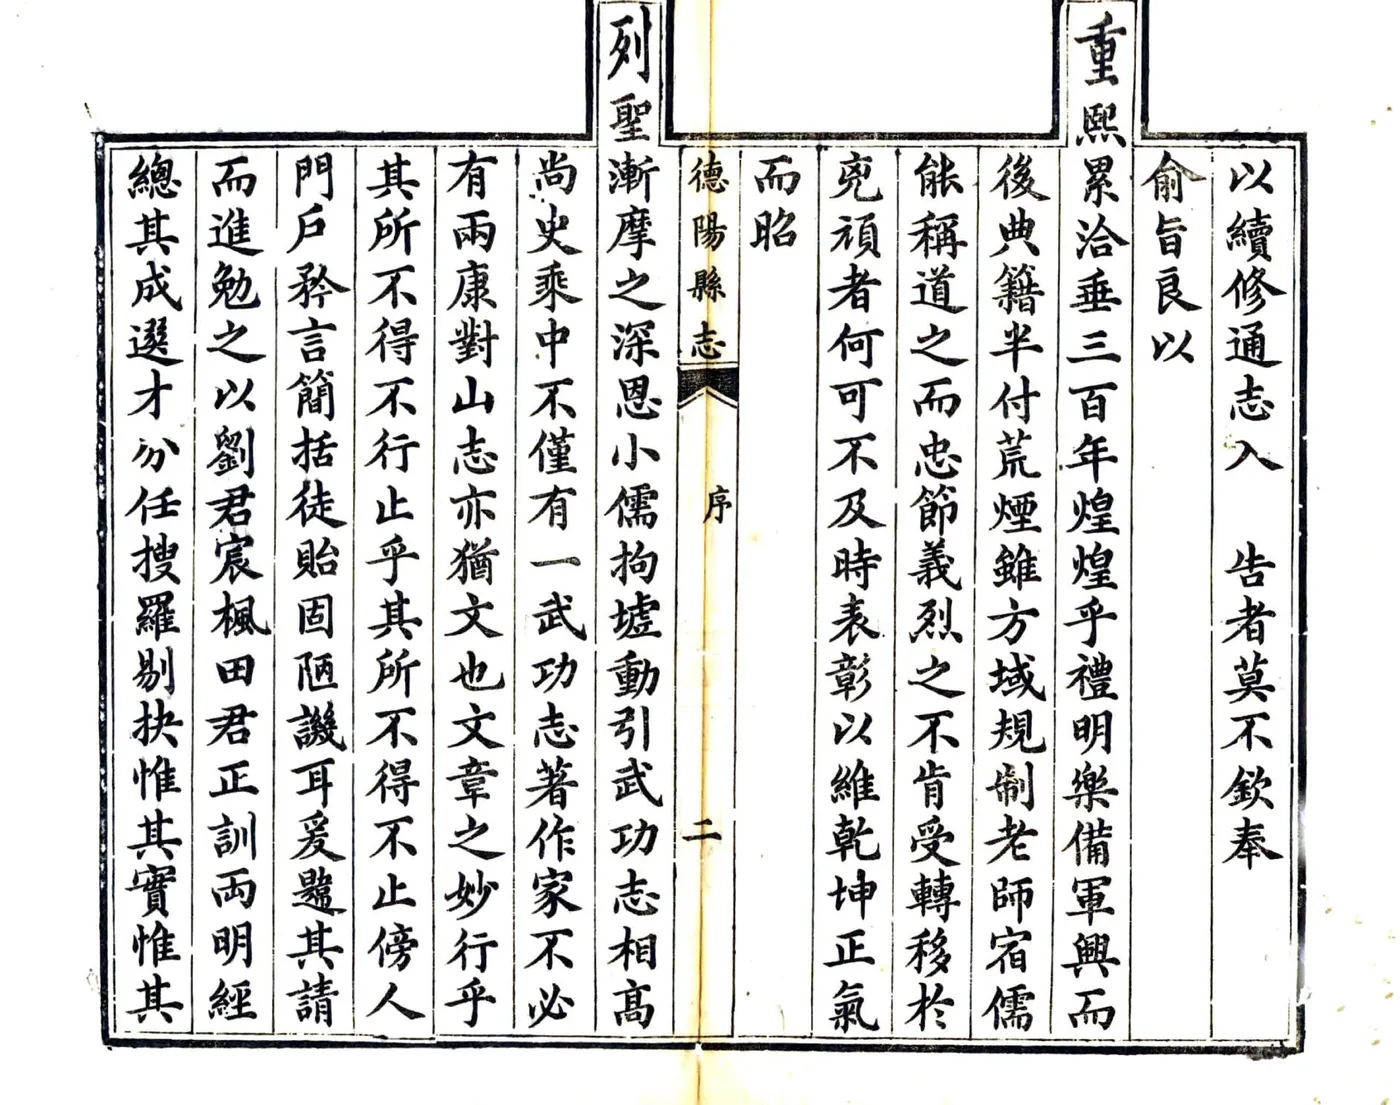 以續修通志入　告者莫不欽奉
俞旨良以
重熙累洽垂三百年煌煌乎禮明樂備軍興而
後典籍半付荒煙雖方域規制老師宿儒
能稱道之而忠節義烈之不肯受轉移於
兇頑者何可不及時表彰以維乾坤正氣
而昭
德陽縣志　序　二
列聖漸摩之深恩小儒拘墟動引武功志相高
尚史乘中不僅有一武功志著作家不必
有兩康對山志亦猶文也文章之妙行乎
其所不得不行止乎其所不得不止傍人
門戶矜言簡括徒貽固陋譏耳爰韙其請
而進勉之以劉君宸楓田君正訓兩明經
總其成選才分任搜羅剔抉惟其實惟其